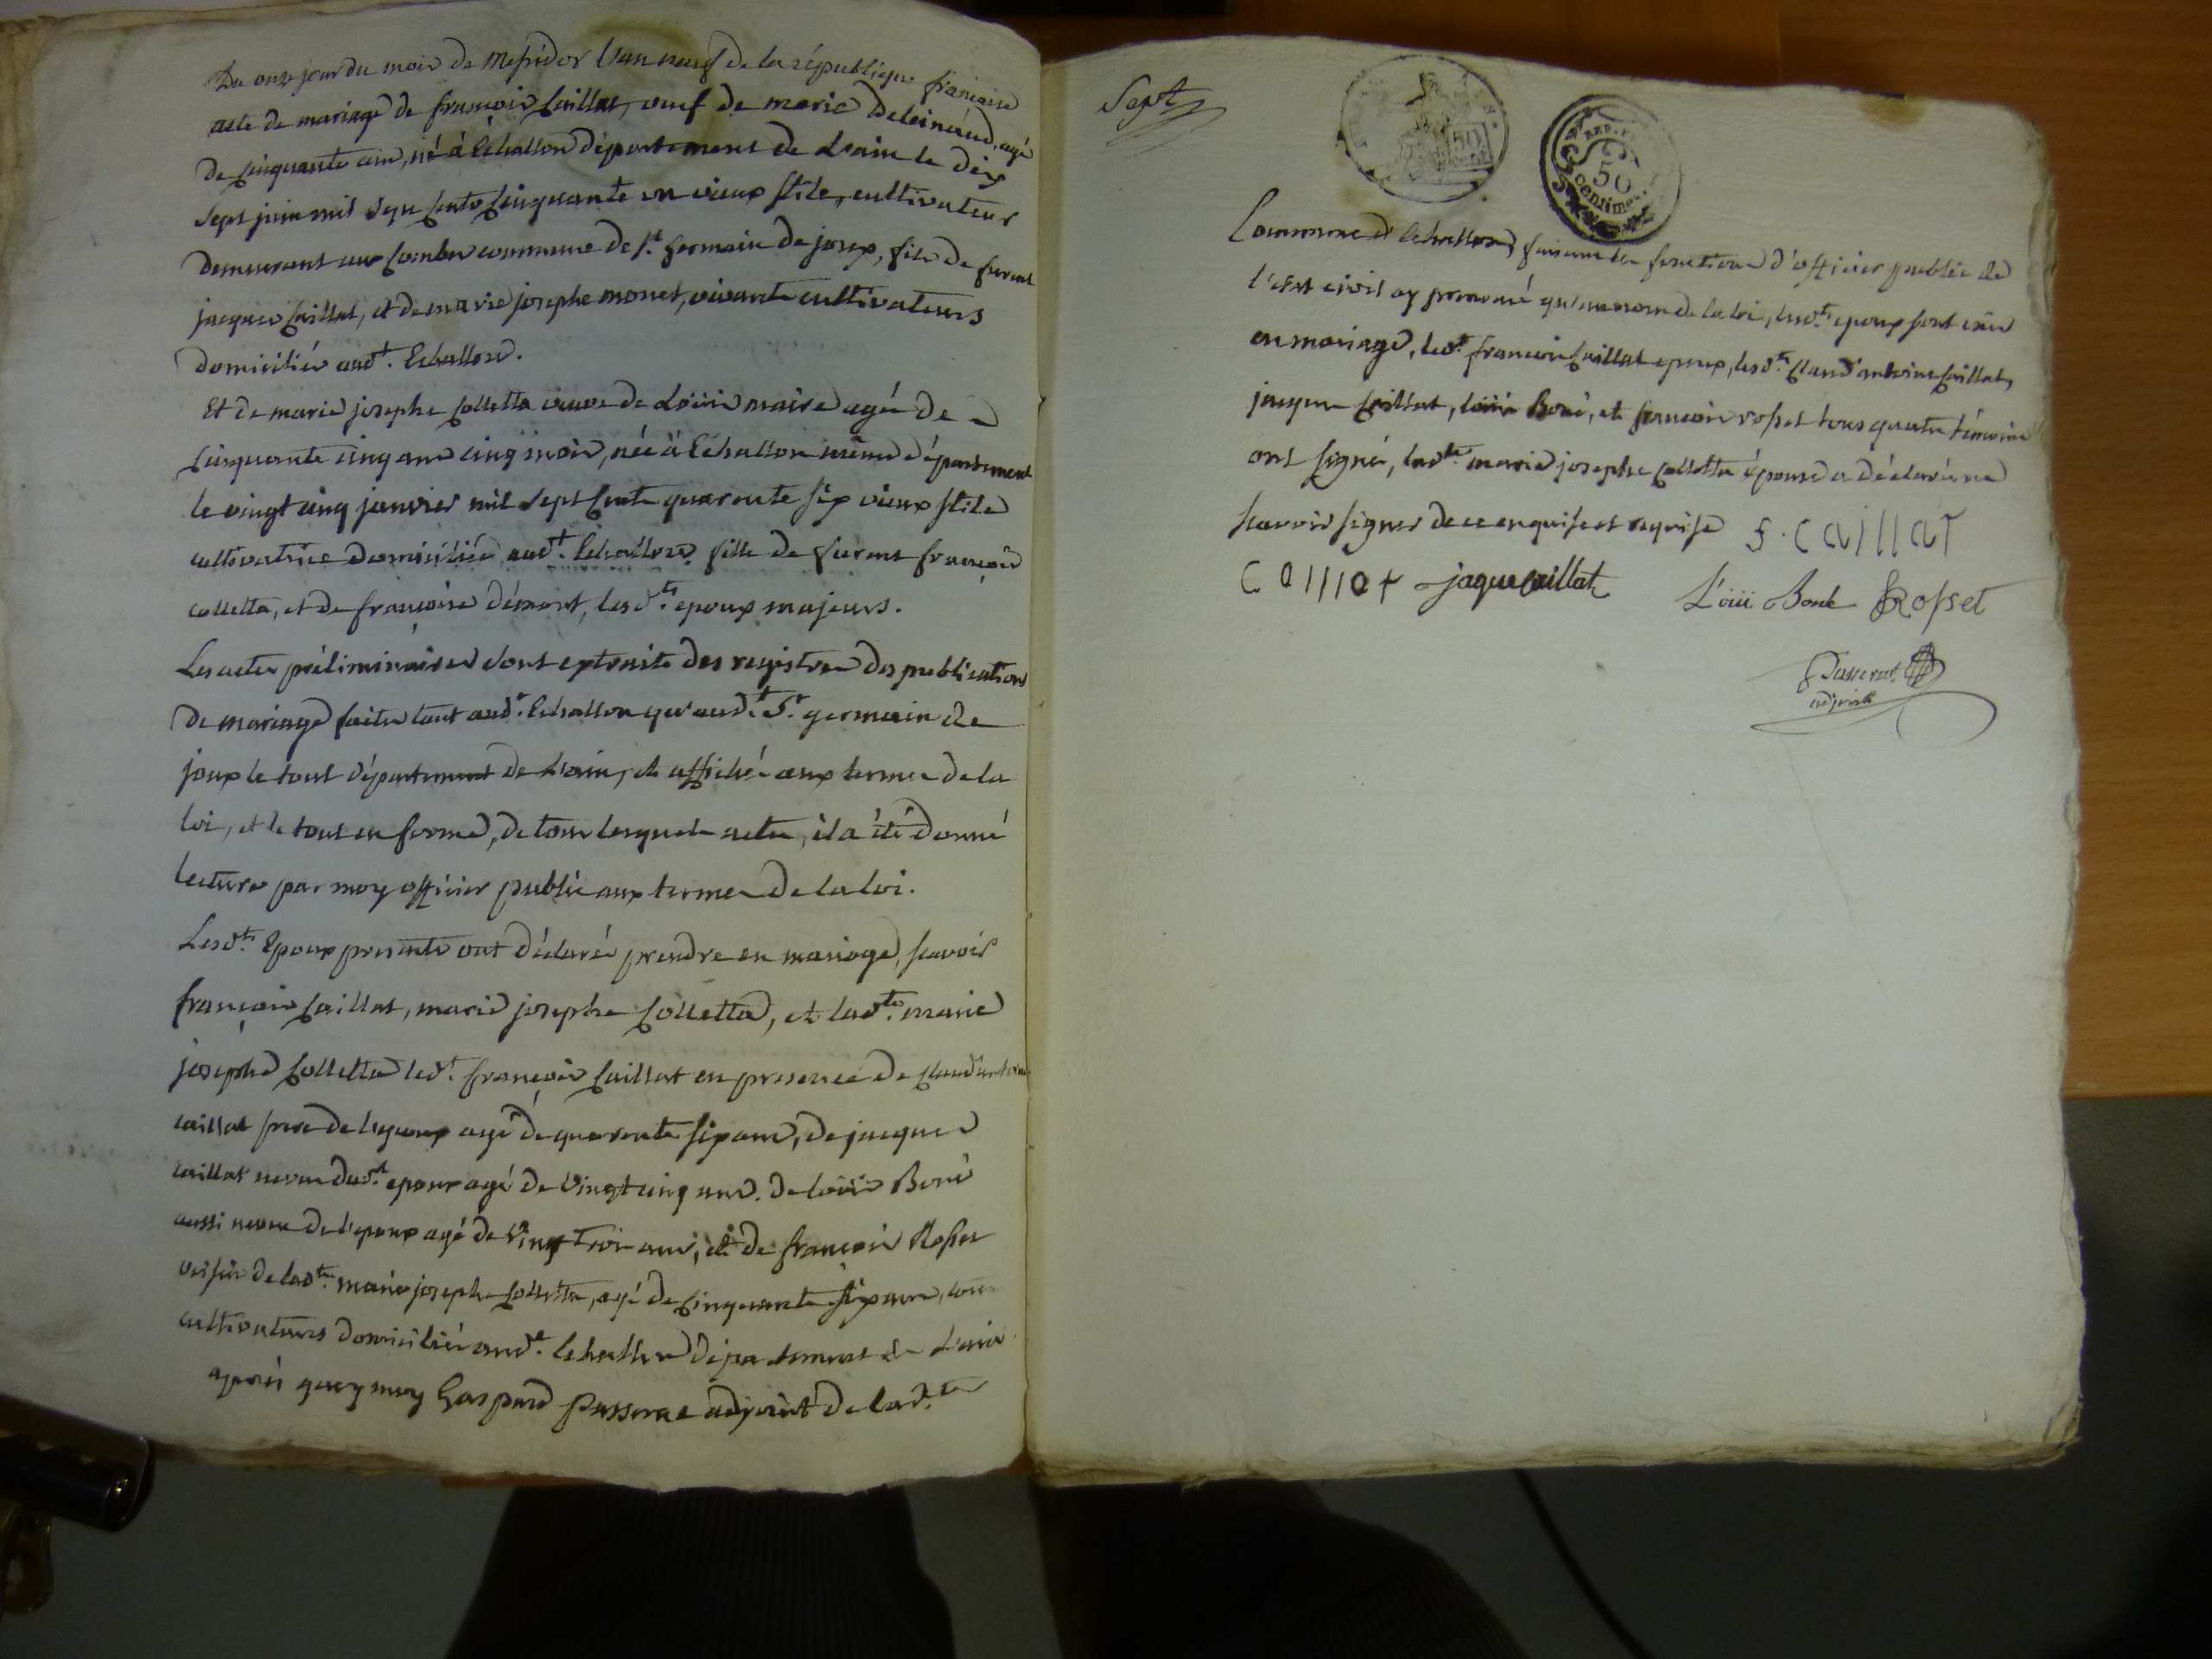 Du onze jour du mois de messidor l'an neuf de la république française
acte de mariage de françois Caillat, veuf de marie agé
de cinquante ans, né à Echallon département de L'ain le dix
sept juin mil sept cents cinquante un vieux stile, cultivateur
demeurant aux Combes commune de St. germain de joux, fils de furent
jacques Caillat, et de marie josephe monet, vivants cultivateurs
domiciliés audt. Echallon.
Et de marie josephe Colletta veuve de Loüis maire agée de
cinquante cinq ans cinq mois, née à Echallon même département
le vingt cinq janvier mil sept cents quarante six vieux stile
cultivatrice domiciliée audt. Echallon fille de furent françois
colletta, et de françoise démont, lesdts. epoux majeurs.
Les actes préliminaires sont extraits des registres des publications
de mariage faites tant audt. Echallon qu'audt. St. germain de
joux le tout département de L'ain, et affichés aux termes de la
loi, et le tout en forme, de tous lesquels actes, il a été donné
lecture par moy officier public aux termes de la loi.
Lesdts. Epoux presents ont déclaré prendre en mariage, scavoir
françois Caillat, marie josephe Colletta, et ladte. marie
josephe Colletta ledt. françois Caillat en presence de Claud'antoine
caillat frere de l'epoux agé de quarante six ans, de jacques
caillat neveu dudt. epoux agé de vingt cinq ans. de loüis Boné
aussi neveu de l'epoux agé de vingt trois ans, et de françois Rosset
voisin de ladte. marie josephe Colletta, agé de cinquante six ans, tous
cultivateurs domiciliés audt. Echallon département de L'ain
après quoy moy Gaspard Passerat adjoint de ladte.
Sept
50
REP. FRA
50
centimes
Commune d'Echallon, faisant les fonctions d'officier public de
l'etat civil ay prononcé qu'au nom de la loi, lesdts. epoux sont unis
en mariage, ledt. françois Caillat epoux, lesdts. Claud'antoine Caillat,
jacques Caillat, loüis Boné, et françois rosset tous quatre témoins
ont signé, ladte. marie josephe Colletta épouse a déclaré ne
scavoir signer de ce enquise et requise F. CaillaT
Caillat jaque caillat Loüi Bone F Rosset
Passerat
adjoint